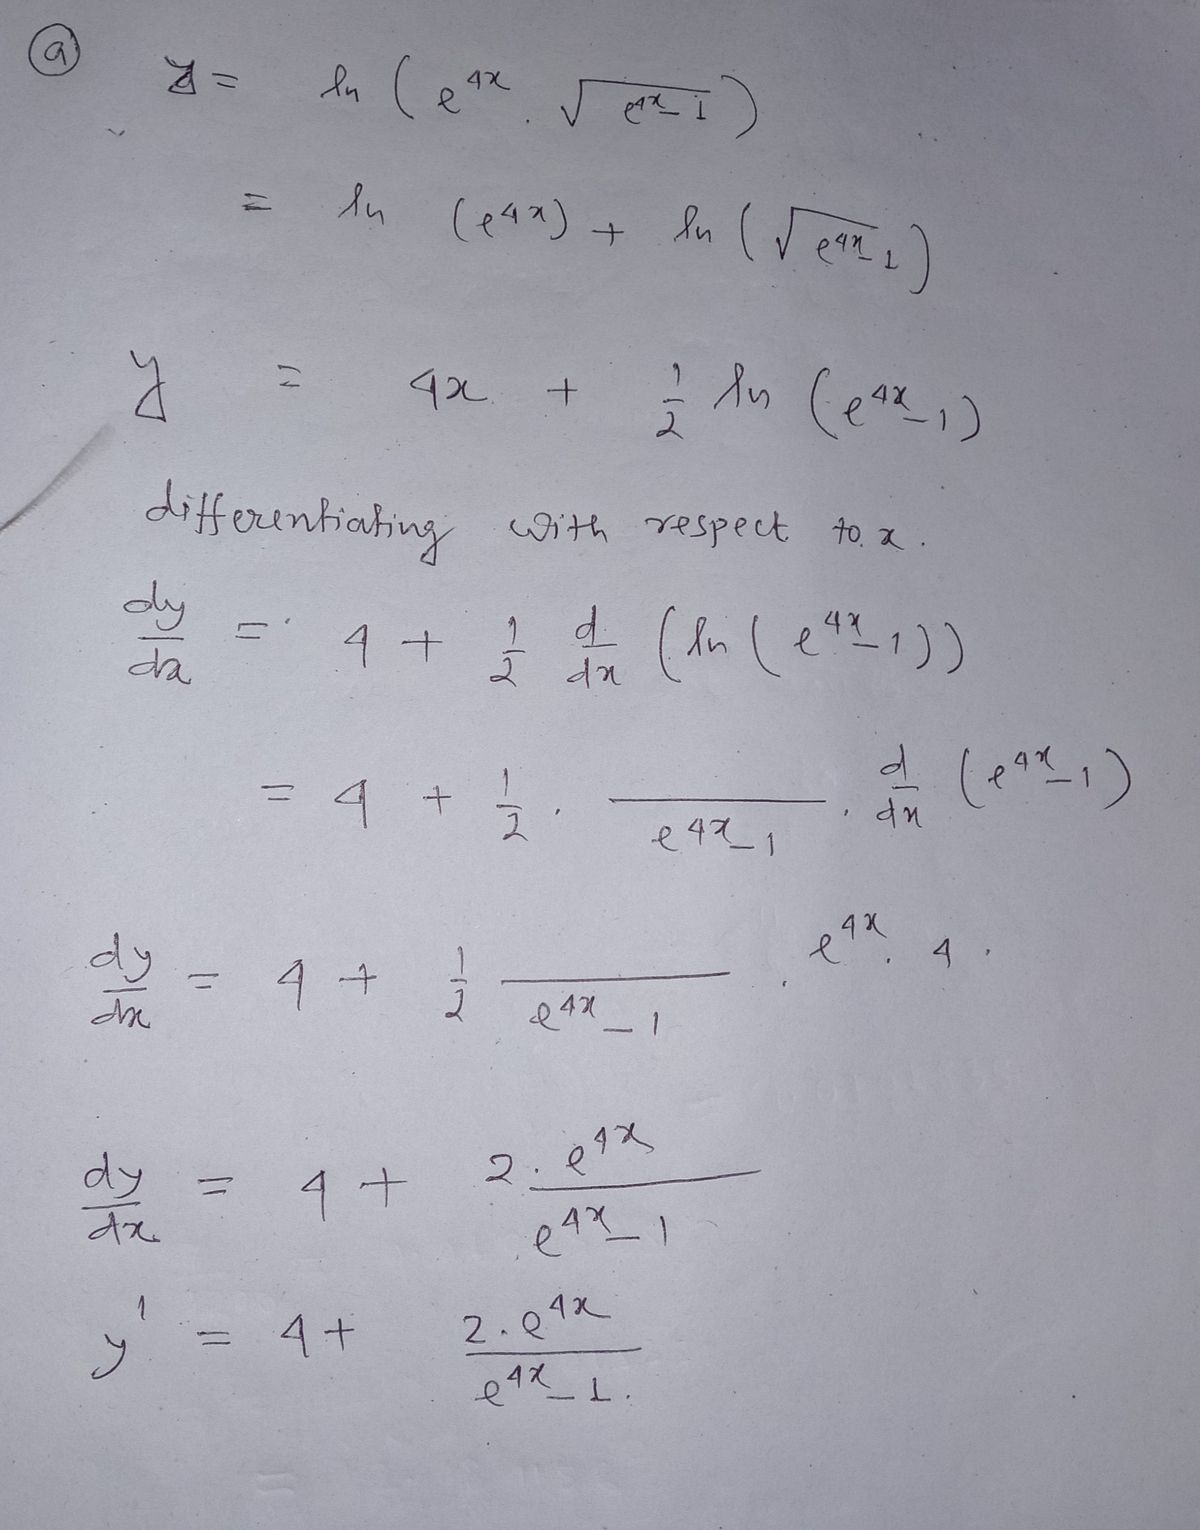 (a) y = ln (e^{4x} . √(e^{4x} - 1))
= ln (e^{4x}) + ln (√(e^{4x} - 1))
y = 4x + 1/2 ln (e^{4x} - 1)
differentiating with respect to x.
dy/dx = 4 + 1/2 d/dx (ln (e^{4x} - 1))
= 4 + 1/2 . /(e^{4x} - 1) . d/dx (e^{4x} - 1)
dy/dx = 4 + 1/2 /(e^{4x} - 1) . e^{4x} . 4 .
dy/dx = 4 + 2 . e^{4x}/(e^{4x} - 1)
y' = 4 + 2 . e^{4x}/(e^{4x} - 1) .